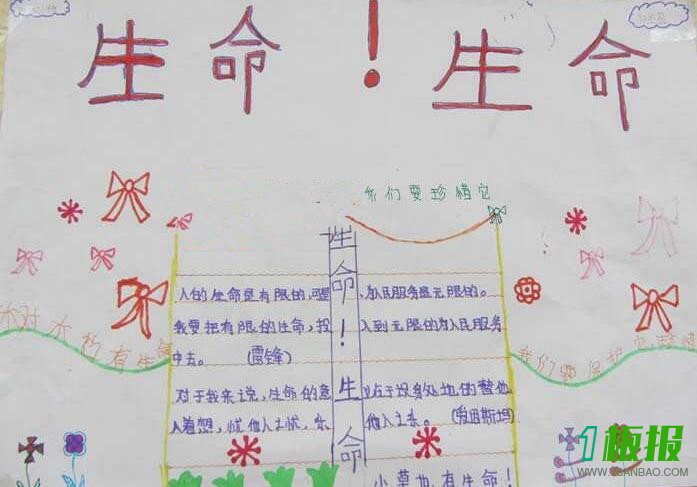 生命！生命
我们要珍惜它
生命！生命
人的生命是有限的,可是,为人民服务是无限的。
我要把有限的生命,投入到无限的为人民服务
中去。 (雷锋)
对于我来说,生命的意义在于设身处地的替他
人着想,忧他人之忧,乐他人之乐。(爱因斯坦)
小草也有生命！
有生命
我们要保护
1板报
WWW.1BANBAO.COM